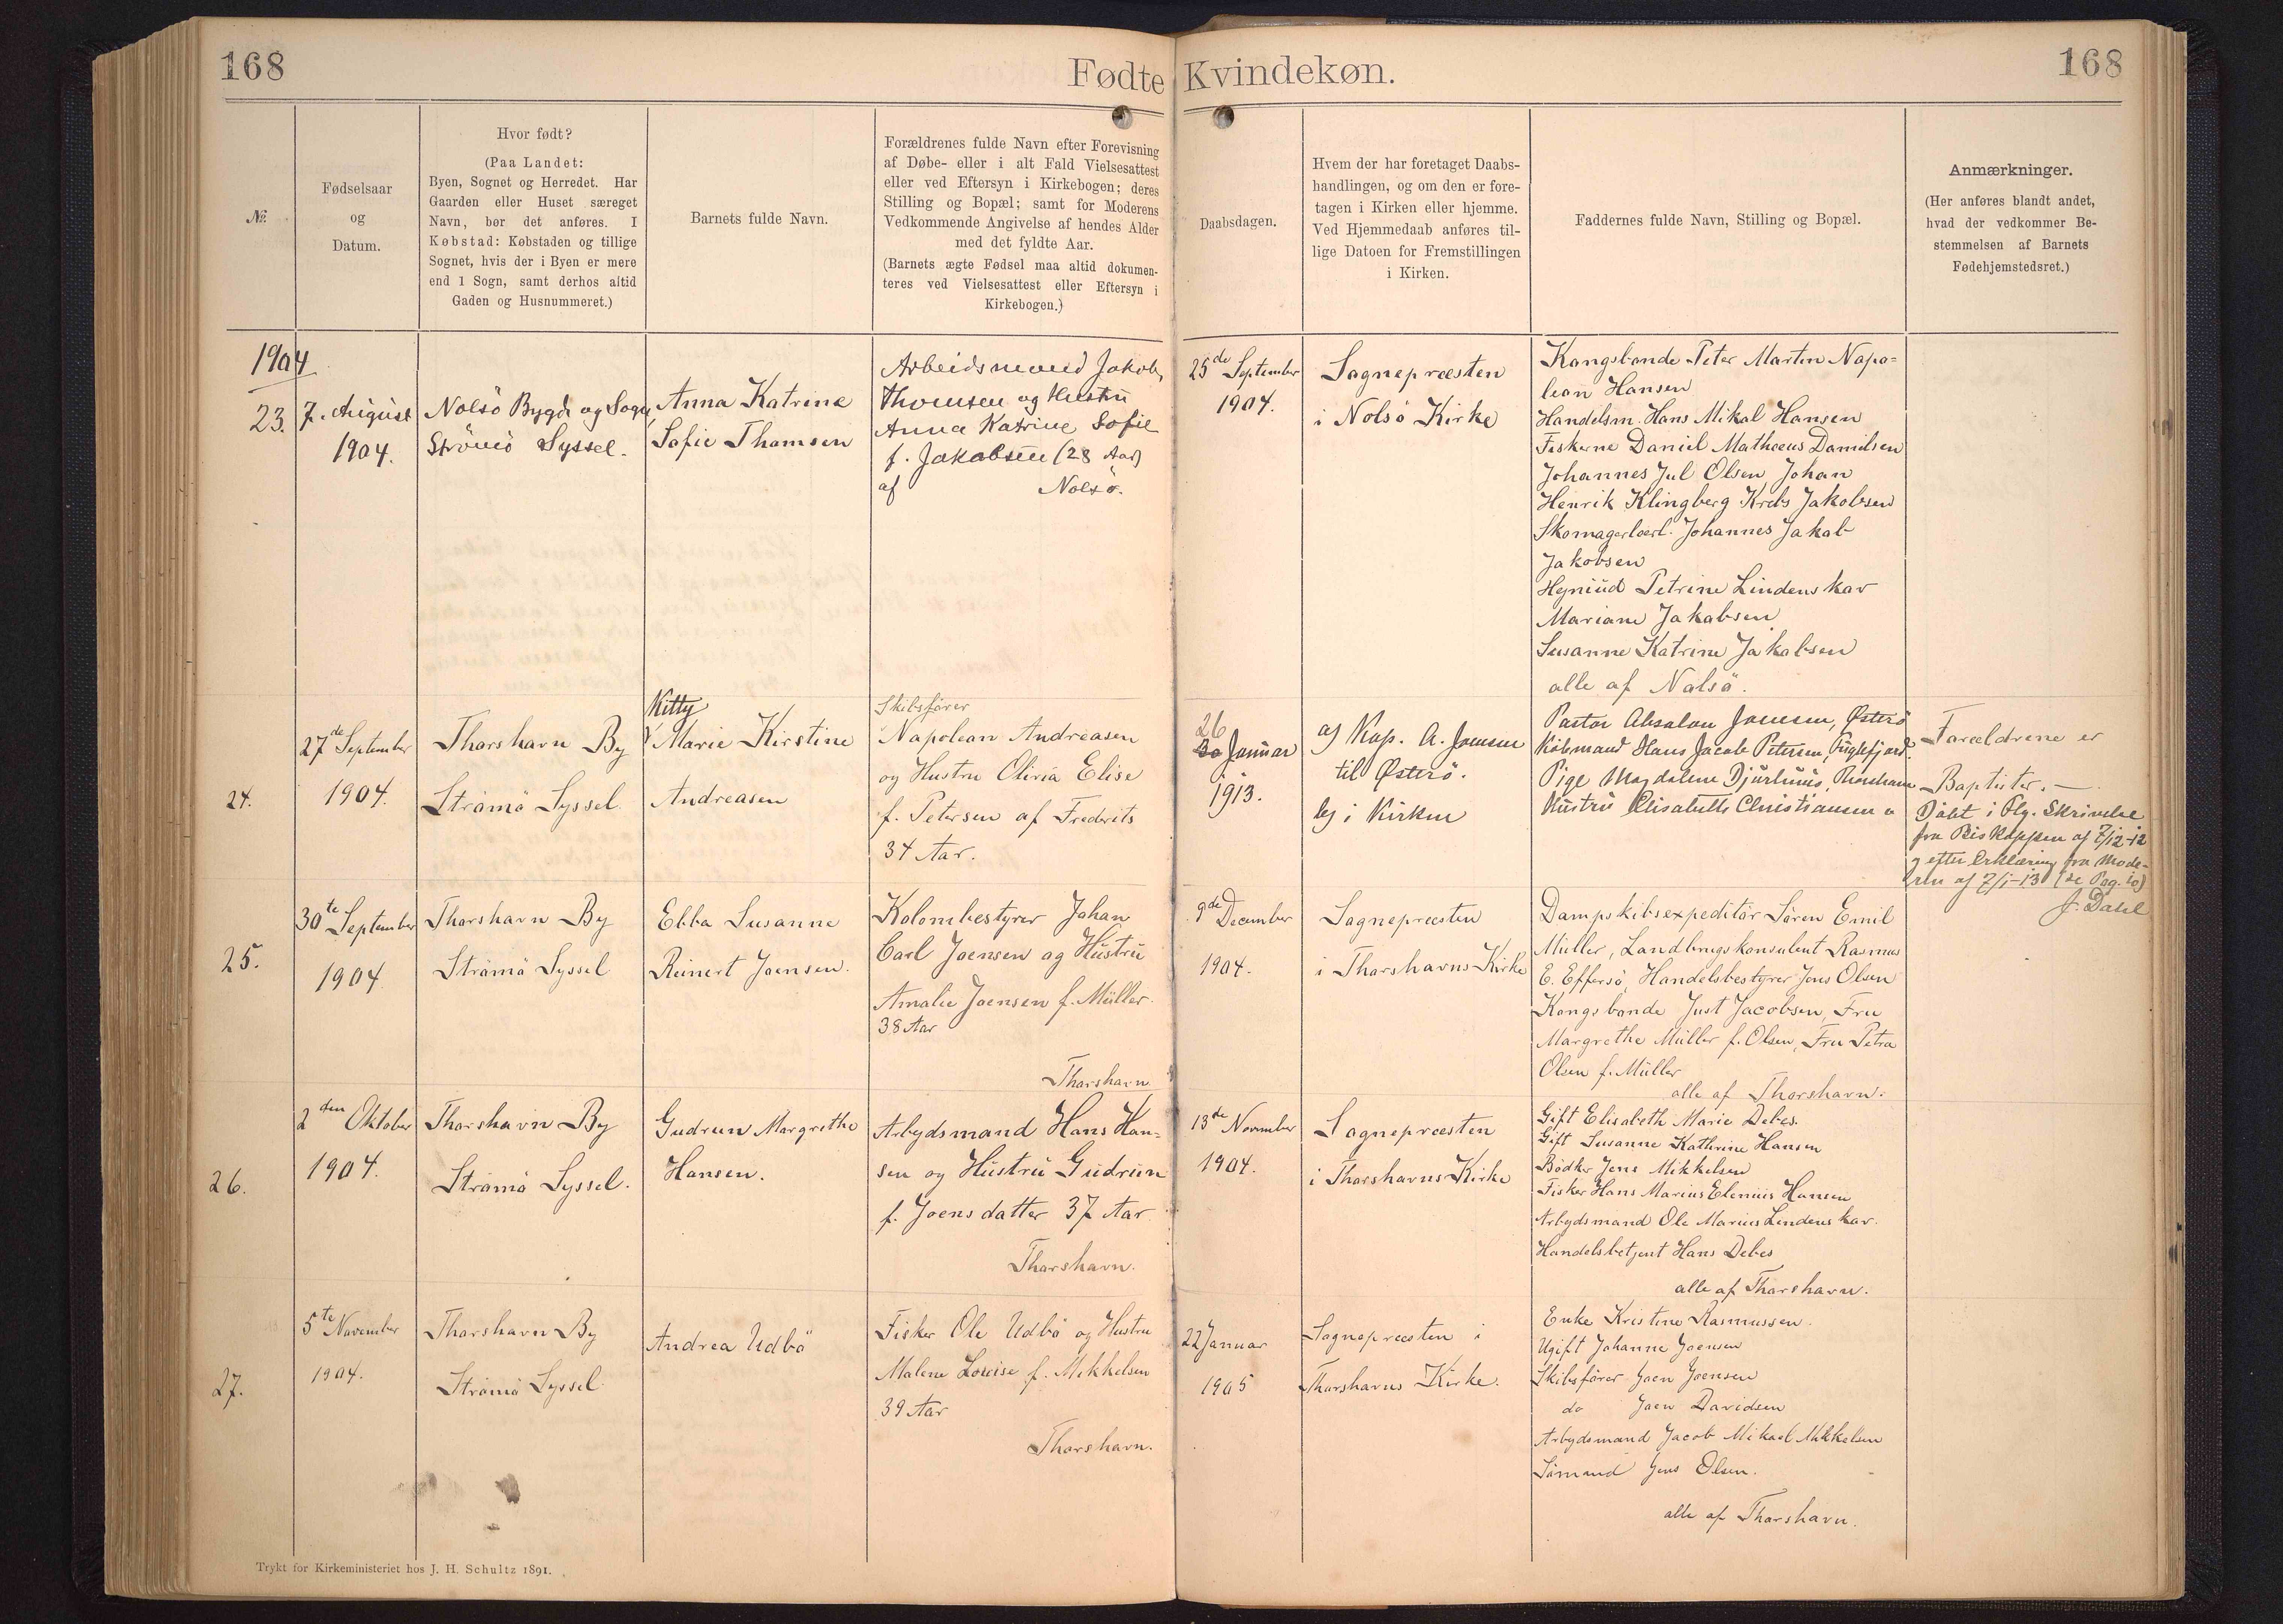 168
Fødte Kvindekøn.
168
№
Fødselsaar
og
Datum.
Hvor født?
(Paa Landet:
Byen, Sognet og Herredet. Har
Gaarden eller Huset særeget
Navn, bør det anføres. I
Købstad: Købstaden og tillige
Sognet, hvis der i Byen er mere
end 1 Sogn, samt derhos altid
Gaden og Husnummeret.)
Barnets fulde Navn.
Forældrenes fulde Navn efter Forevisning
af Døbe- eller i alt Fald Vielsesattest
eller ved Eftersyn i Kirkebogen; deres
Stilling og Bopæl; samt for Moderens
Vedkommende Angivelse af hendes Alder
med det fyldte Aar.
(Barnets ægte Fødsel maa altid dokumen-
teres ved Vielsesattest eller Eftersyn i
Kirkebogen.)
Daabsdagen.
Hvem der har foretaget Daabs-
handlingen, og om den er fore-
tagen i Kirken eller hjemme.
Ved Hjemmedaab anføres til-
lige Datoen for Fremstillingen
i Kirken.
Faddernes fulde Navn, Stilling og Bopæl.
Anmærkninger.
(Her anføres blandt andet,
hvad der vedkommer Be-
stemmelsen af Barnets
Fødehjemstedsret.)
1904
23.
7. August
1904.
Nolsö Bygd og Sogn,
Strömö Syssel.
Anna Katrine
Sofie Thomsen
Arbeidsmand Jakob
Thomsen og Hustru
Anna Katrine Sofie
f. Jakobsen (28 Aar)
af Nolsö.
25de September
1904.
Sognepræsten
i Nolsö Kirke
Kongsbonde Peter Martin Napo=
leon Hansen
Handelsm. Hans Mikal Hansen
Fiskerne Daniel Mathæus Danielsen
Johannes Jul Olsen Johan
Henrik Klingberg Krebs Jakobsen
Skomagerlærl. Johannes Jakob
Jakobsen
Petrine Lindenskov
Mariane Jakobsen
Susanne Katrine Jakobsen
alle af Nolsö.
24.
27de September
1904.
Thorshavn By
Strömö Syssel.
Kitty
Marie Kirstine
Andreasen
Skibsfører
Napoleon Andreasen
og Hustru Olivia Elise
f. Petersen af Frederits
34 Aar.
26
Januar
1913.
af Kap. A. Joensen
til Østerö.
i Kirken
Pastor Absalon Joensen, Østerö
Købmand Hans Jacob Petersen, Fuglefjord.
Pige Magdalene Djurhuus, Thorshavn
Hustru Elisabeth Christiansen
Forældrene er
Baptister. —
Døbt i Flg. Skrivelse
fra Biskoppen af 7/12-12
og efter Erklæring fra Mode-
ren af 7/1-13 (se Pag. 10)
J. Dahl
25.
30te September
1904
Thorshavn By
Strömö Syssel
Ebba Susanne
Reinert Joensen.
Kolonibestyrer Johan
Carl Joensen og Hustru
Amalie Joensen f. Müller.
38 Aar
Thorshavn
9de December
1904.
Sognepræsten
i Thorshavns Kirke
Dampskibsexpeditör Sören Emil
Müller, Landbrugskonsulent Rasmus
E. Effersö, Handelsbestyrer Jens Olsen
Kongsbonde Just Jacobsen, Fru
Margrethe Müller f. Olsen, Fru Petra
Olsen f. Müller
alle af Thorshavn.
26.
2den Oktober
1904.
Thorshavn By
Strömö Syssel.
Gudrun Margrethe
Hansen.
Arbydsmand Hans Han=
sen og Hustru Gudrun
f. Joensdatter 37 Aar
Thorshavn.
13de November
1904.
Sognepræsten
i Thorshavns Kirke
Gift Elisabeth Marie Debes.
Gift Susanne Kathrine Hansen
Bödker Jens Mikkelsen
Fisker Hans Marius Elenius Hansen
Arbydsmand Ole Marius Lindenskov.
Handelsbetjent Hans Debes
alle af Thorshavn.
27.
5te November
1904.
Thorshavn By
Strömö Syssel.
Andrea Udbö
Fisker Ole Udbö og Hustru
Malene Louise f. Mikkelsen
39 Aar
Thorshavn.
22 Januar
1905
Sognepræsten i
Thorshavns Kirke.
Enke Kristine Rasmussen.
Ugift Johanne Joensen
Skibsfører Joen Joensen
do Joen Davidsen
Arbydsmand Jacob Mikael Mikkelsen
Sömand Jens Olsen.
alle af Thorshavn.
Trykt for Kirkeministeriet hos J. H. Schultz 1891.